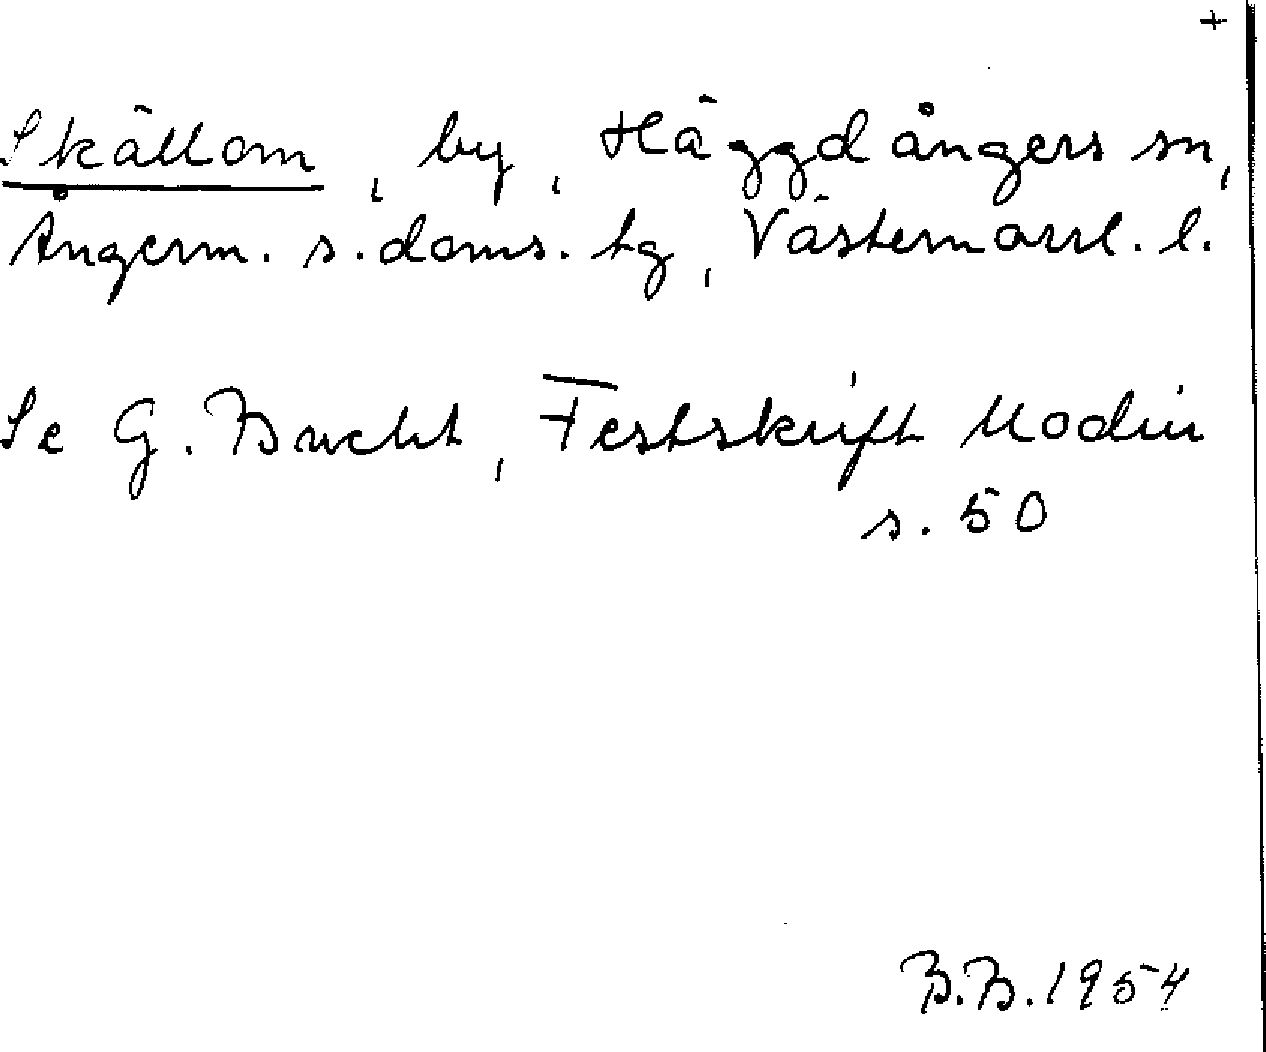 +
Skällom, by, Häggdångers sn,
Ångerm. s. doms. tg, Västernorrl. l.
Se G. Bucht, Festskrift Modin
s. 50
B.B. 1954